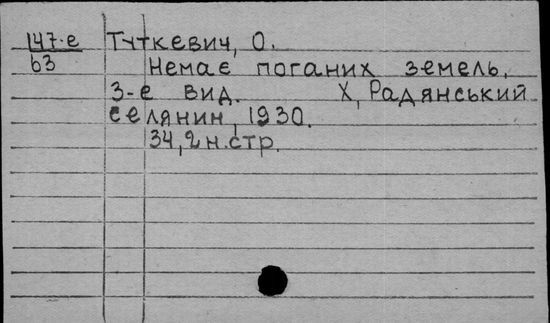 147-е Туткевич, О.
63 Немає поганих земель.
3-е вид. Х, Радянський
селянин, 1930.
34, 2 н. стр.